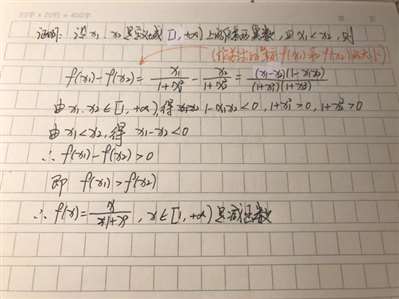 证明：设x₁、x₂是定义域[1,+∞)上的任意两个实数，且x₁<x₂，则
(作差法比较f(x₁)和f(x₂)的大小)
f(x₁)-f(x₂)= x₁/(1+x₁²) - x₂/(1+x₂²) = (x₁-x₂)(1-x₁x₂)/(1+x₁²)(1+x₂²)
由x₁、x₂∈[1,+∞),得 1-x₁x₂<0, 1+x₁²>0, 1+x₂²>0
由x₁<x₂, 得 x₁-x₂<0
∴ f(x₁)-f(x₂)>0
即 f(x₁)>f(x₂)
∴ f(x)= x/(1+x²), x∈[1,+∞)是减函数